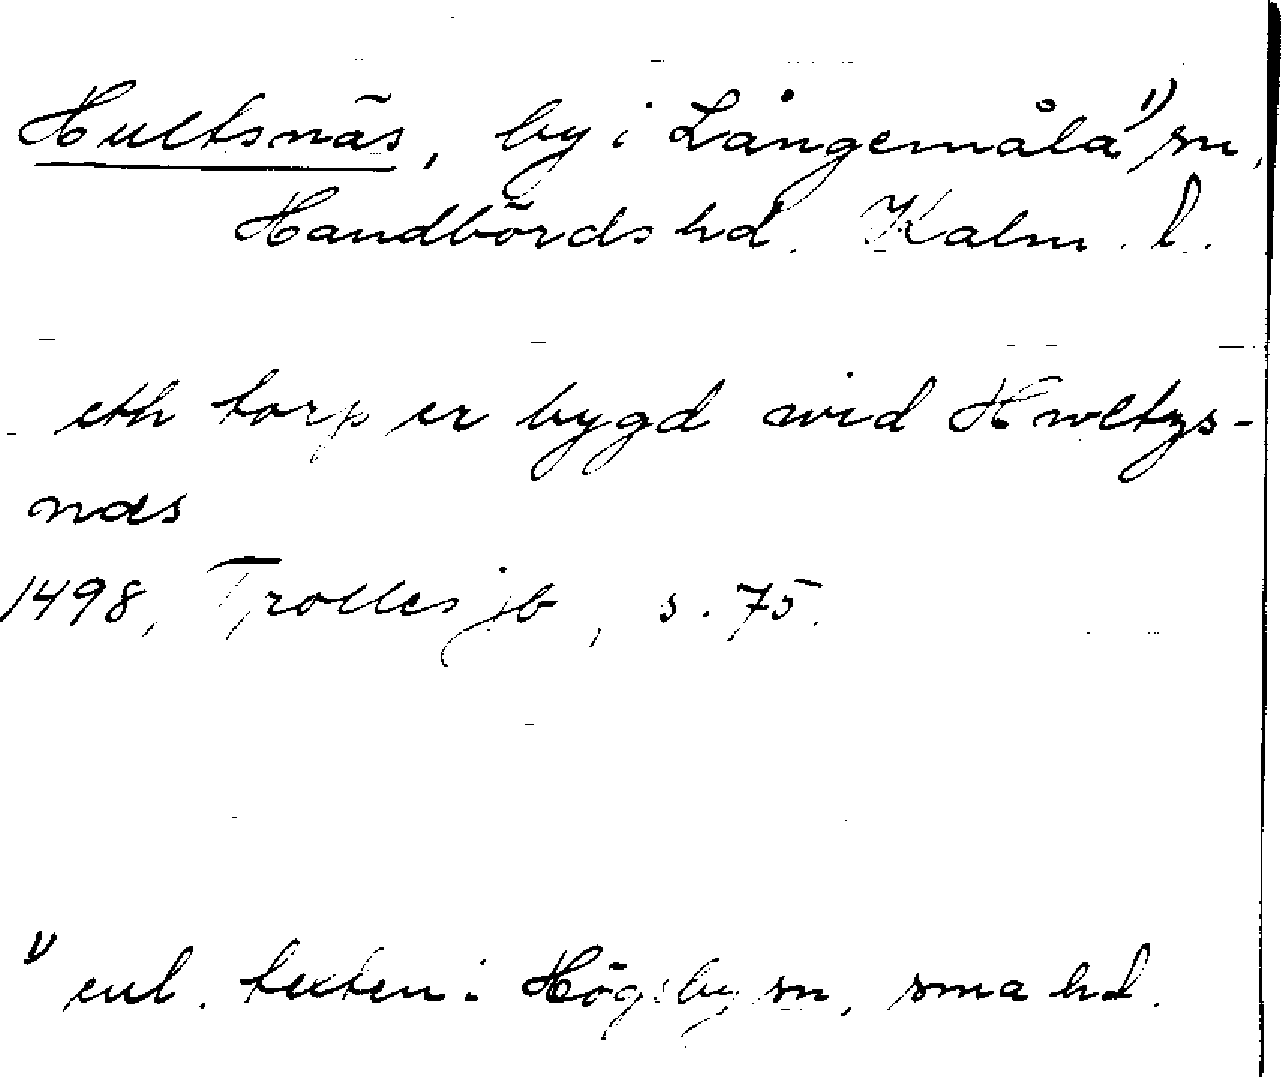 Hultsnäs, by i Långemåla 1) sn,
Handbörds hd. Kalm. l.
eth torp er bygd wid Hwltzs-
næs
1498, Trolles jb, s. 75.
1) enl. texten: Högsby sn, sma hd.